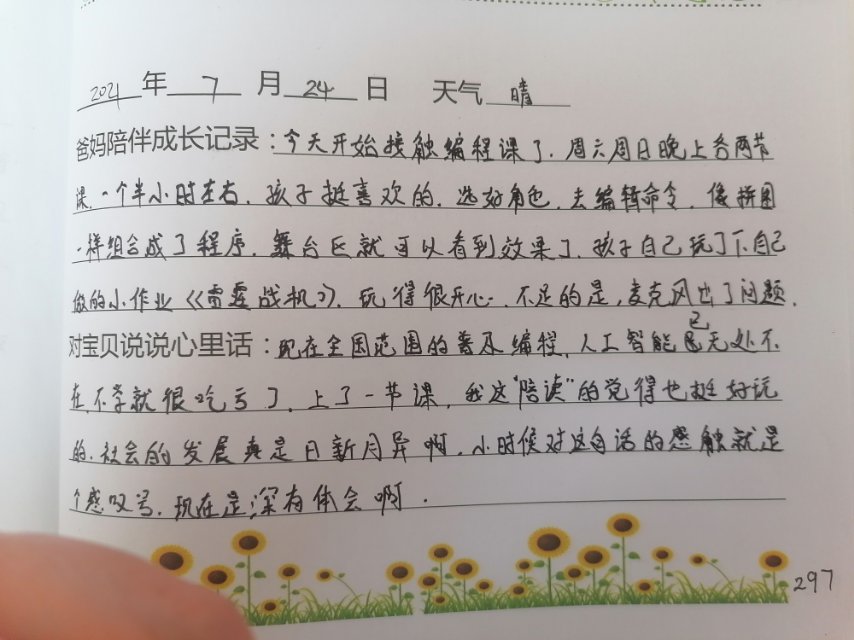 2021年7月24日 天气晴
爸妈陪伴成长记录：今天开始接触编程课了．周六周日晚上各两节
课，一个半小时左右．孩子挺喜欢的．选好角色，去编辑命令，像拼图
一样组合成了程序，舞台区就可以看到效果了．孩子自己玩了下自己
做的小作业《雷霆战机》，玩得很开心．不足的是，麦克风出了问题．
对宝贝说说心里话：现在全国范围的普及编程，人工智能已无处不
在，不学就很吃亏了．上了一节课，我这"陪读"的觉得也挺好玩
的．社会的发展真是日新月异啊，小时候对这句话的感触就是
个感叹号，现在是深有体会啊．
297